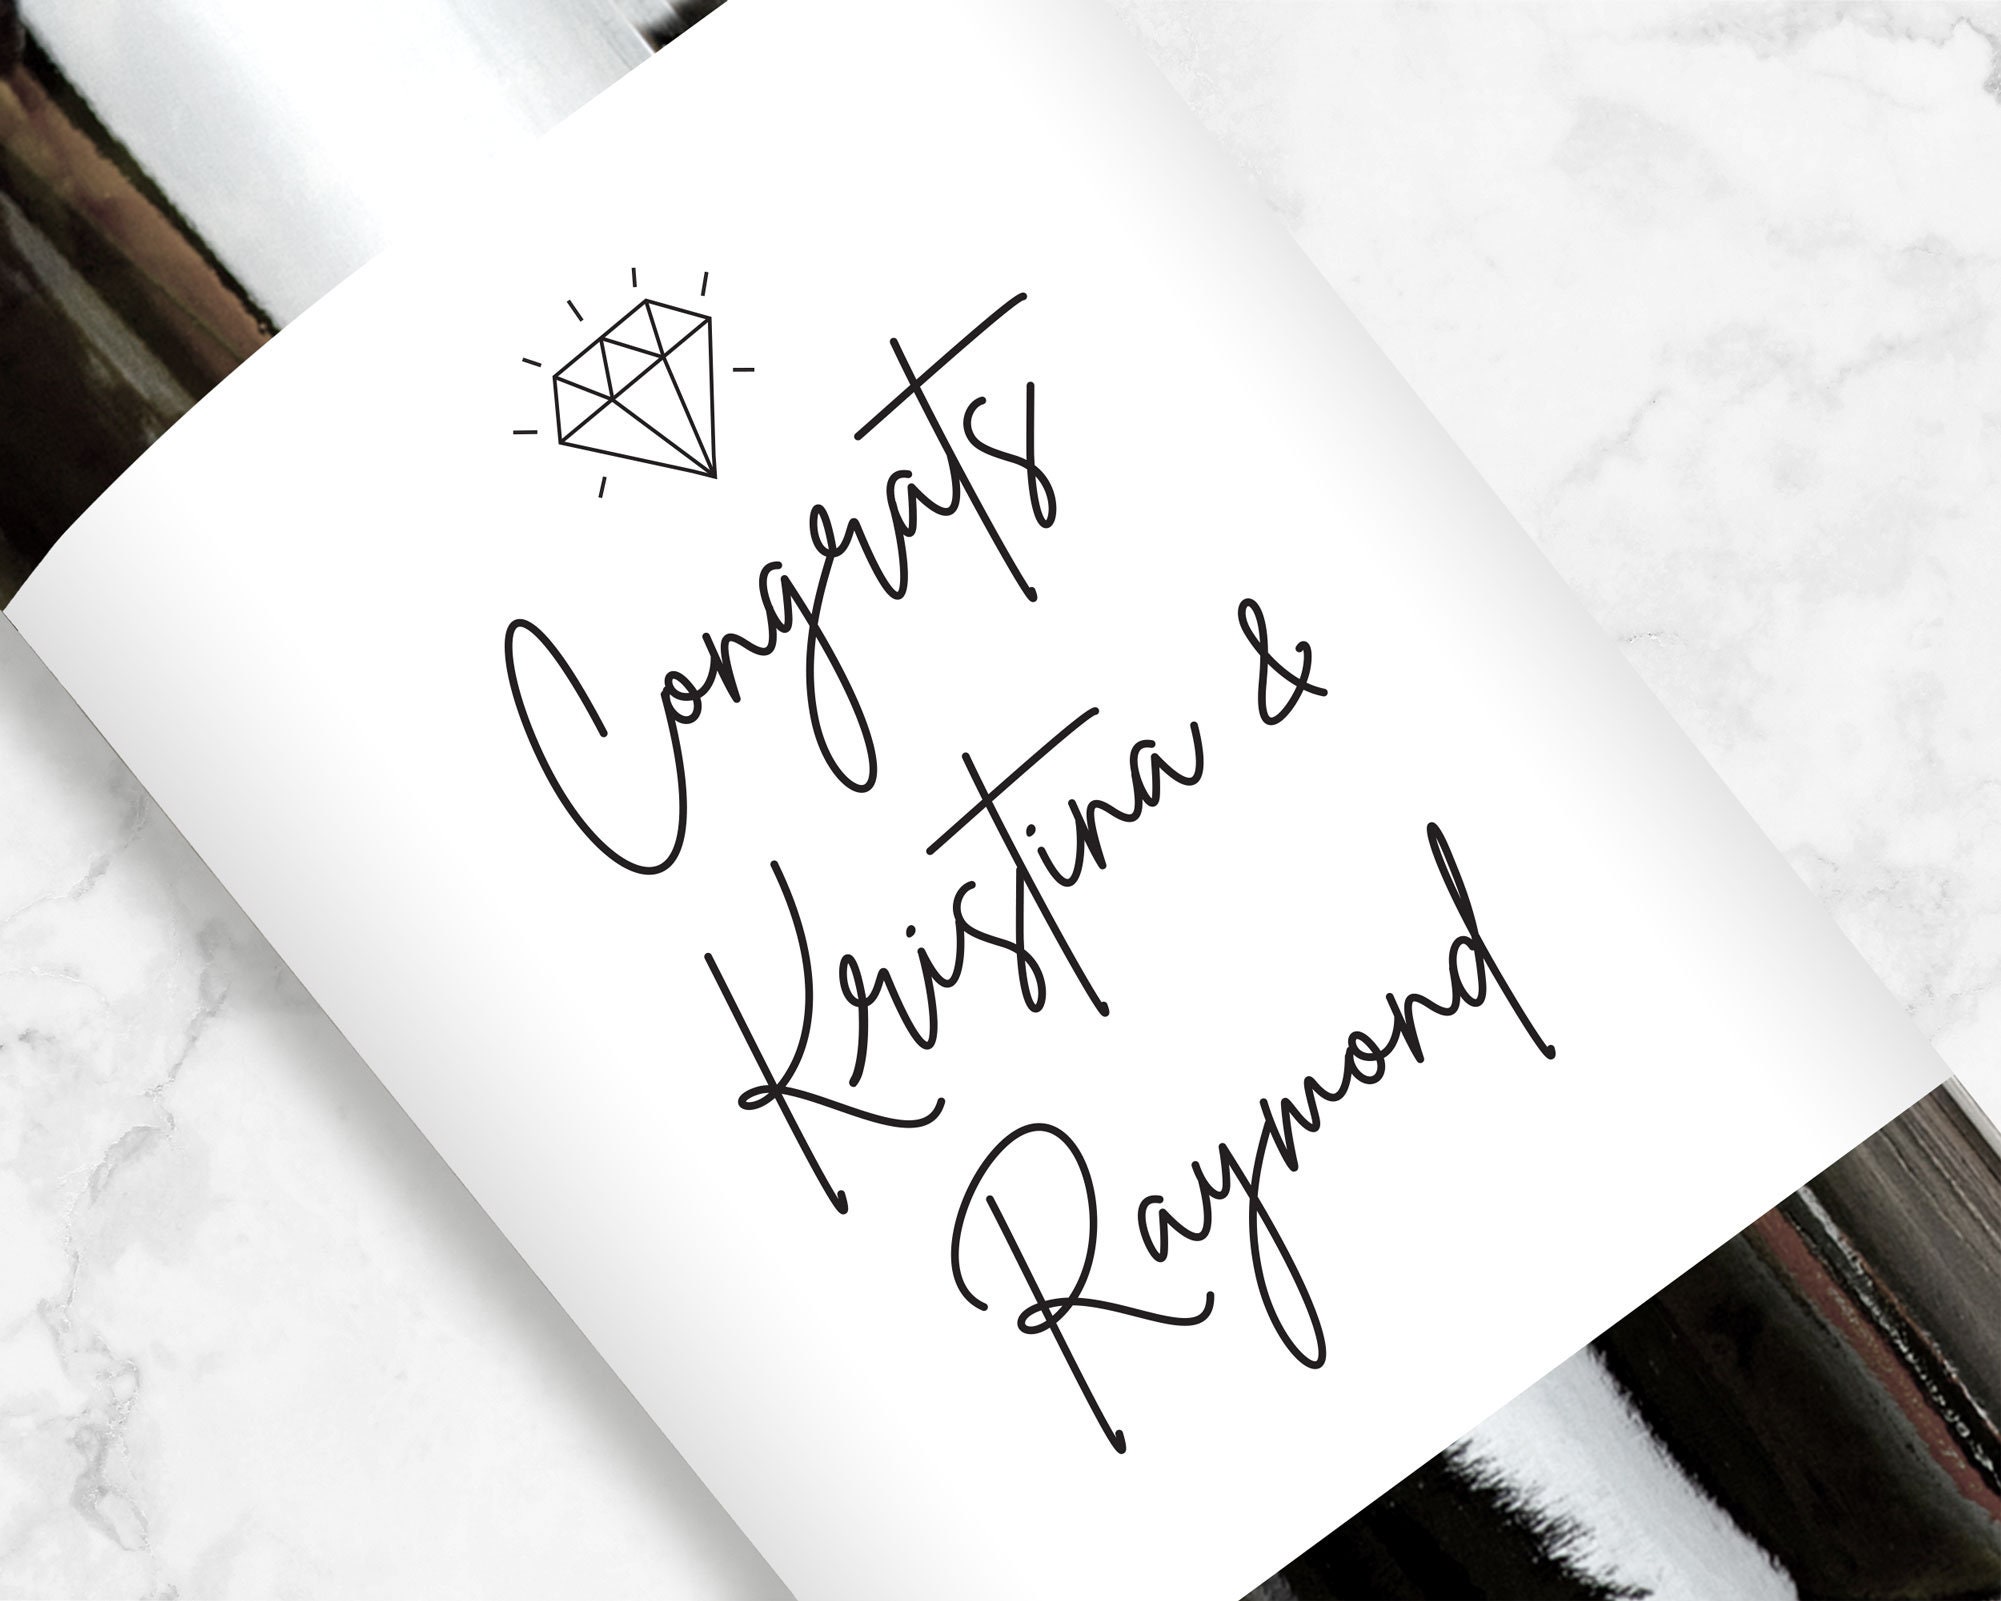 Congrats
Kristina &
Raymond